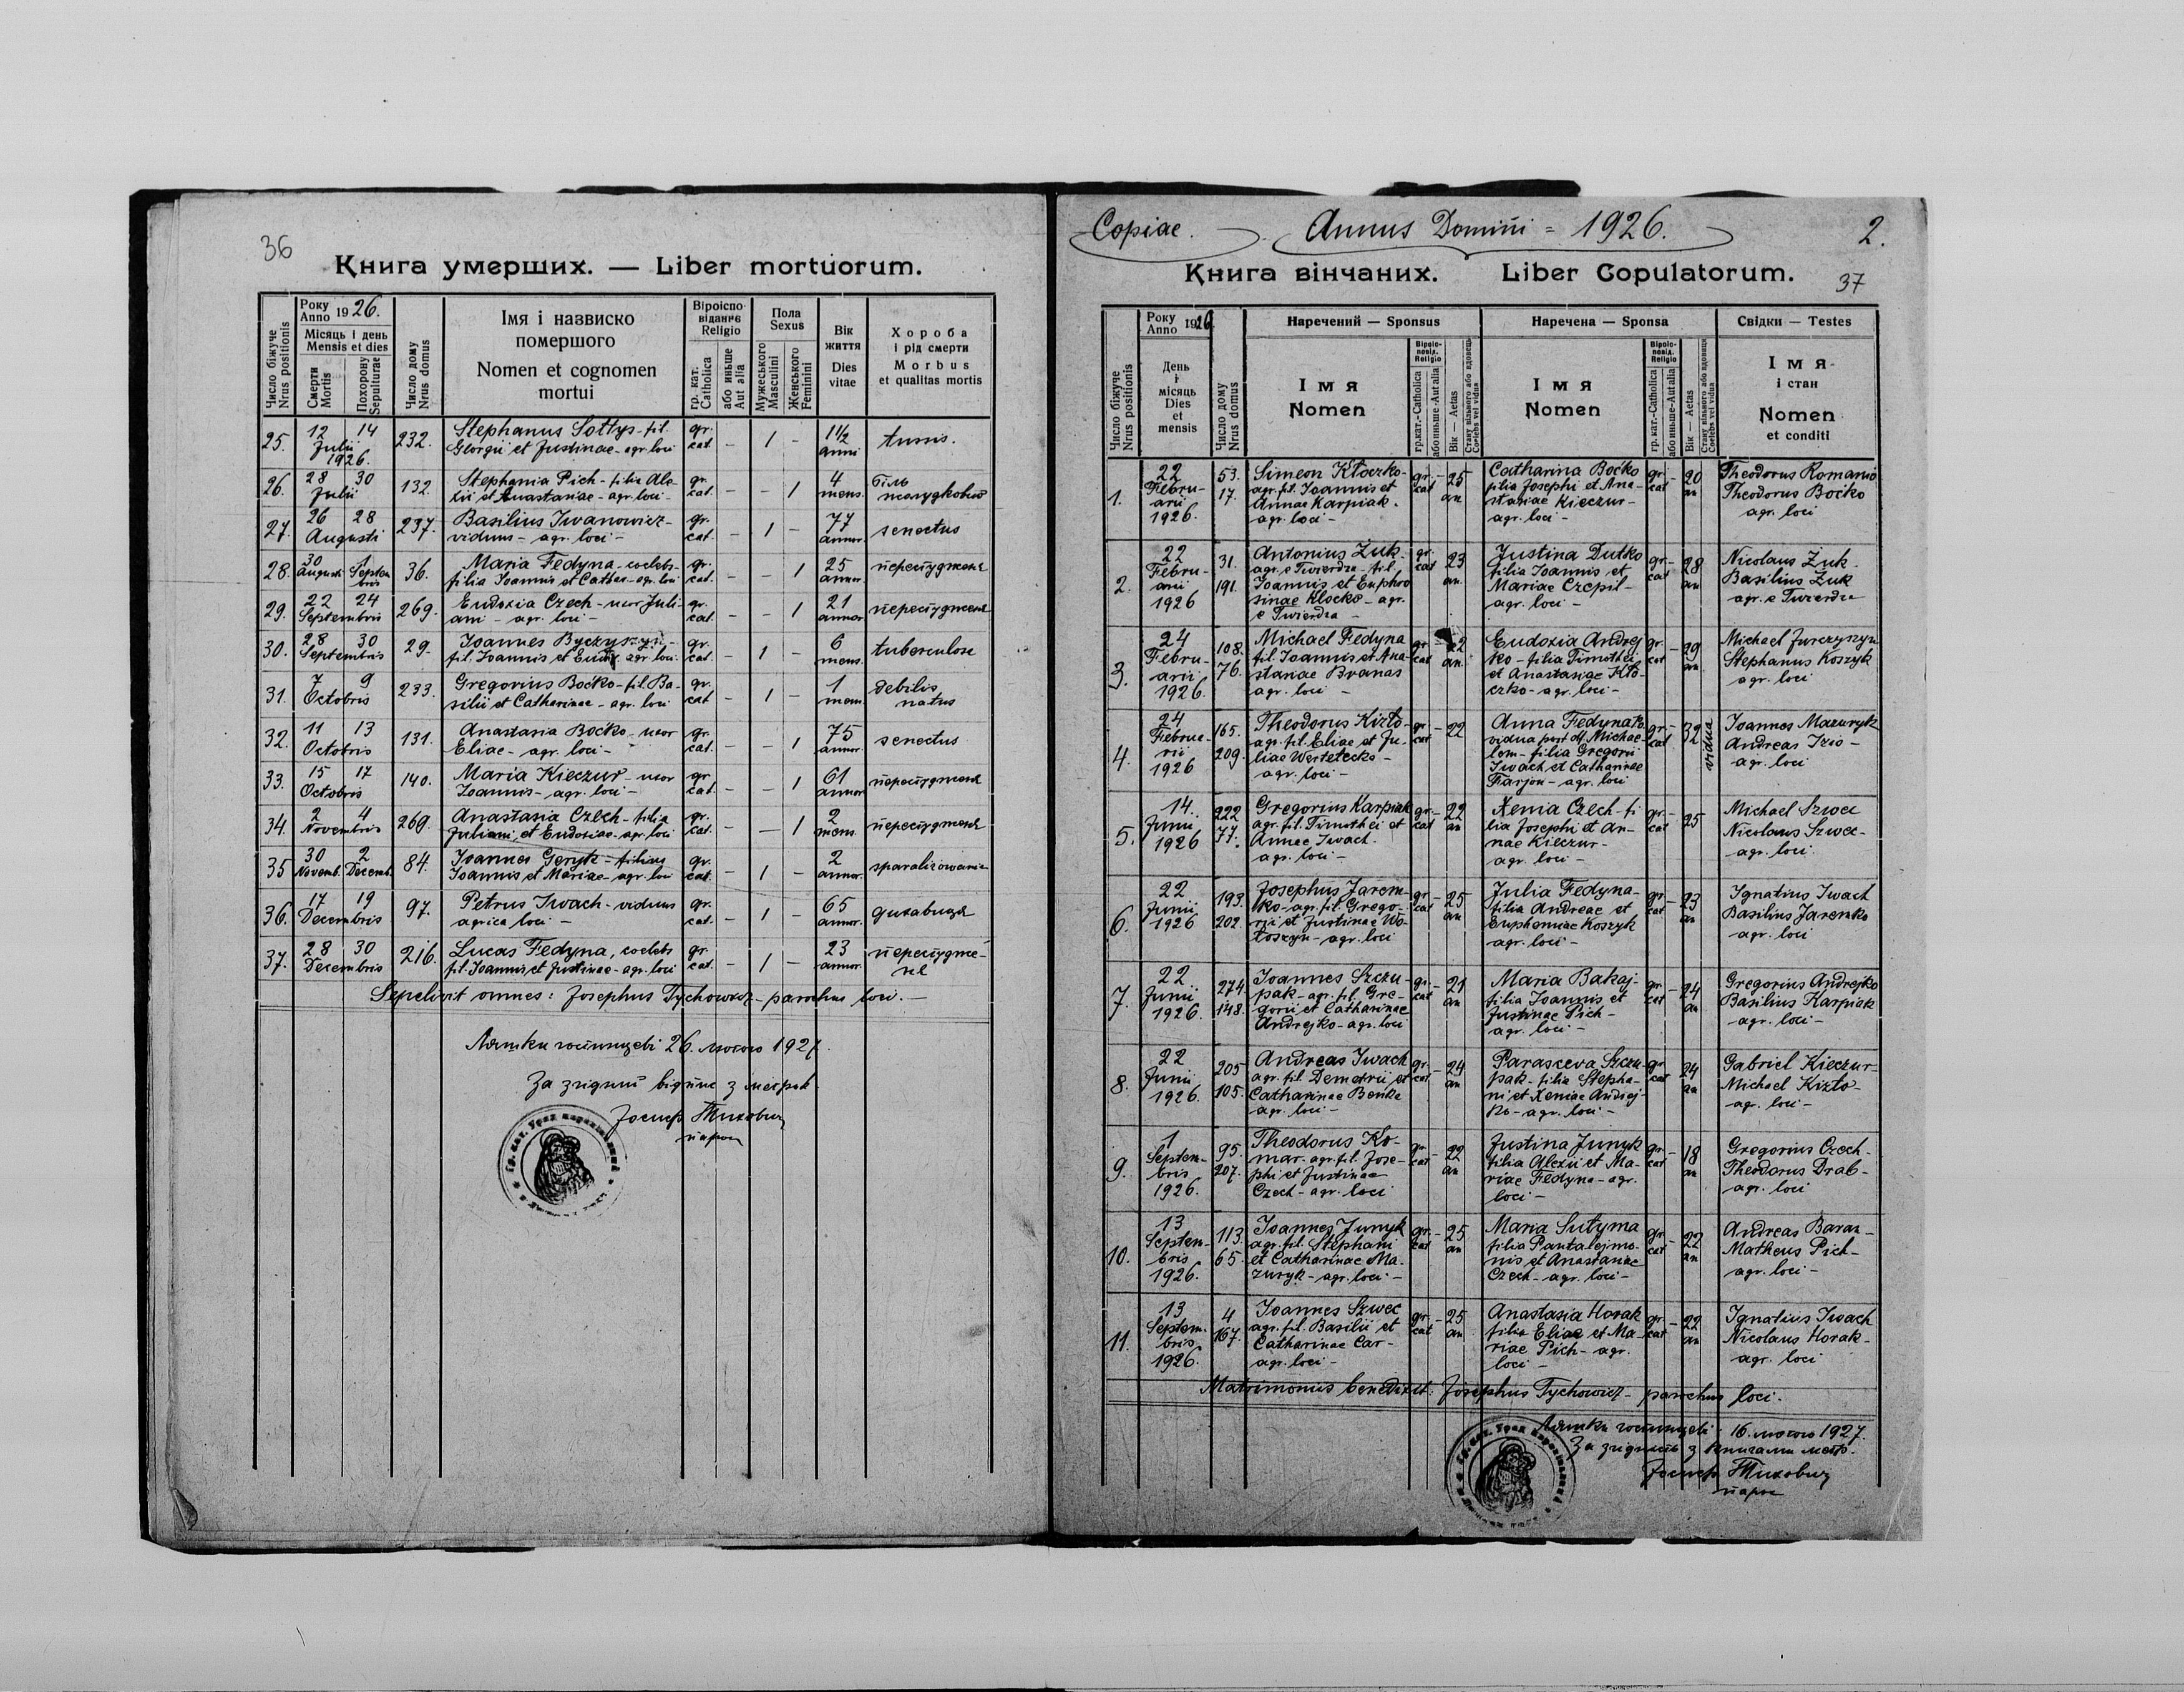 36
Книга умерших. — Liber mortuorum.
Число біжуче
Nrus positionis
Року
Anno 1926.
Місяць і день
Mensis et dies
Смерти
Mortis
Похорону
Sepulturae
Число дому
Nrus domus
Імя і назвиско
помершого
Nomen et cognomen
mortui
Віроіспо
віданнє
Religio
гр. кат.
Catholica
або иньше
Aut alia
Пола
Sexus
Мужеського
Masculini
Женського
Feminini
Вік
життя
Dies
vitae
Хороба
і рід смерти
Morbus
et qualitas mortis
25. 12 14 232. Stephanus Sołtys - fil. gr. — 1 — 1 1/2 tussis.
Julii Georgii et Justinae - agr. loci cat. anni
1926.
26. 28 30 132. Stephania Pich - filia Ale- gr. — — 1 4 біль
Julii xii et Anastasiae - agr. loci - cat. mens.
27. 26 28 237. Basilius Iwanowicz - gr. — 1 — 77 senectus
Augusti viduus - agr. loci - cat. annor.
28. 30 1 36. Maria Fedyna - coelebs - gr. — — 1 25
Augusti Septembris filia Joannis et Cathar - agr. loci cat. annor.
29. 22 24 269. Eudoxia Czech - uxor Juli- gr. — — 1 21
Septembris ani - agr. loci - cat. annor
30. 28 30 29. Joannes Byczyszyn - gr. — 1 — 6 tuberculose
Septembris fil. Joannis et agr. loci. cat. mens.
31. 7 9 233. Gregorius Boćko - fil. Ba- gr. — 1 — 1 debilis
Octobris silii et Catharinae - agr. loci cat natus
32. 11 13 131. Anastasia Boćko - uxor gr. — — 1 75 senectus
Octobris Eliae - agr. loci - cat. annor.
33. 15 17 140. Maria Kieczur - uxor gr — — 1 61
Octobris Joannis - agr. loci - cat. annor
34. 2 4 269. Anastasia Czech - filia gr. — — 1 2
Novembris Juliani et Eudoxiae - agr. loci cat. mens.
35 30 2 84. Joannes Geryk - filius gr. — 1 — 2 sparalizowanie
Novemb. Decemb. Joannis et Mariae - agr. loci cat. annor.
36. 17 19 97. Petrus Iwach - viduus gr. — 1 — 65
Decembris agrica loci - cat. annor.
37. 28 30 216. Lucas Fedyna, coelebs gr. — 1 — 23
Decembris fil. Joannis et Justinae - agr. loci cat. annor.
Sepelivit omnes: Josephus Tychowicz - parochus loci. —
Ляшки гостинцеві 26. лютого 1927
За згідний відпис з метрик
Йосиф Тихович
парох
Copiae. Annus Domini = 1926. 2.
Книга вінчаних. Liber Copulatorum.
37
Число біжуче
Nrus positionis
Року
Anno 1926
День
і
місяць
Dies
et
mensis
Число дому
Nrus domus
Наречений — Sponsus
Імя
Nomen
Віроіс-
повід.
Religio
гр.кат.-Catholica
або иньше-Aut alia
Вік — Aetas
Стану вільного або вдовець
Coelebs vel vidus
Наречена — Sponsa
Імя
Nomen
Віроіс-
повід.
Religio
гр. кат.-Catholica
або иньше-Aut alia
Вік — Aetas
Стану вільного або вдовиця
Coelebs vel vidua
Свідки — Testes
Імя
і стан
Nomen
et conditi
1. 22 53. Simeon Kłoczko - gr. — 25 Catharina Boćko gr. — 20 Theodorus Romanio
Febru- 17. agr. fil. Joannis et cat an. filia Josephi et Ana- cat an Theodorus Boćko
arii Annae Karpiak. stasiae Kieczur - agr. loci
1926. agr. loci - agr. loci -
2. 22 31. Antonius Żuk. gr. — 23 Justina Dutko gr. — 28 Nicolaus Żuk.
Febru- 191. agr. e Twierdza - fil. cat an. filia Joannis et cat an Basilius Żuk
arii Joannis et Euphro Mariae Czepil - agr. e Twierdza
1926 sinae Klocko - agr. agr. loci -
e Twierdza -
3. 24 108. Michael Fedyna gr. — 22 Eudoxia Andrej gr. — 29 Michael Jurczyszyn
Febru- 76. fil. Joannis et Ana- cat an. ko - filia Timothei cat an Stephanus Koszyk
arii stasiae Branas et Anastasiae Kło- agr. loci
1926. agr. loci - czko - agr. loci -
4. 24 165. Theodorus Kizło - gr — 22 Anna Fedynako gr. — 32 vidua Joannes Mazuryk
209. agr. fil. Eliae et Ju- cat vidua post df Michae- cat Andreas
1926 liae lem - filia Gregorii agr. loci -
agr. loci - Iwach et Catharinae
Farjon - agr. loci
5. 14. 222 Gregorius Karpiak gr. — 22 Xenia Czech - fi gr. — 25 Michael Szwec
Junii 77. agr. fil. Timothei et cat an lia Josephi et An- cat Nicolaus Szwec -
1926 Annae Iwach. nae Kieczur - agr. loci.
agr. loci - agr. loci -
6. 22 193. Josephus Jarem- gr. — 25 Julia Fedyna - gr — 23 Ignatius Iwach
Junii 202. ko - agr. fil. Grego- cat an filia Andreae et cat an Basilius Jaremko
1926 rii et Justinae Wo- Euphemiae Koszyk agr. loci
łoszyn - agr. loci agr. loci -
7. 22 274 Joannes Szczu - gr. — 21 Maria Bakaj - gr — 24 Gregorius Andrejko
Junii 148. pak - agr. fil. Gre- cat an filia Joannis et cat an Basilius Karpiak
1926. gorii et Catharinae Justinae Pich - agr. loci -
Andrejko - agr. loci agr. loci -
8. 22 205 Andreas Iwach gr. — 24 Parasceva Szczu- gr — 24 Gabriel Kieczur
Junii 105. agr. fil. Demetrii et cat an pak - filia Stepha- cat an Michael Kizło -
1926. Catharinae Benke ni et Xeniae Andrej- agr. loci -
agr. loci - ko - agr. loci -
9. 1 95. Theodorus Ko- gr — 22 Justina Junyk gr — 18 Gregorius Czech -
Septem- 207. mar. agr. fil. Jose- cat an. filia Alexii et Ma- cat an Theodorus Drab -
bris phi et Justinae riae Fedyna - agr. agr. loci
1926. Czech - agr. loci loci -
10. 13 113. Joannes Junyk gr. — 25 Maria Sutyma gr — 22 Andreas Baran -
Septem- 65. agr. fil. Stephani cat an filia Pantalejmo- cat an Matheus Pich -
bris et Catharinae Ma- nis et Anastasiae agr. loci -
1926. zuryk - agr. loci - Czech - agr. loci -
11. 13 4 Joannes Szwec gr — 25 Anastasia Horak gr. — 22 Ignatius Iwach
Septem. 167. agr. fil. Basilii et cat an filia Eliae et Ma- cat an Nicolaus Horak -
bris Catharinae Car - riae Pich - agr. agr. loci
1926. agr. loci - loci -
Matrimonius benedixit: Josephus Tychowicz - parochus loci.
Ляшки гостинцеві 16. лютого 1927.
За згідність з книгами метр.
Йосиф Тихович
парох